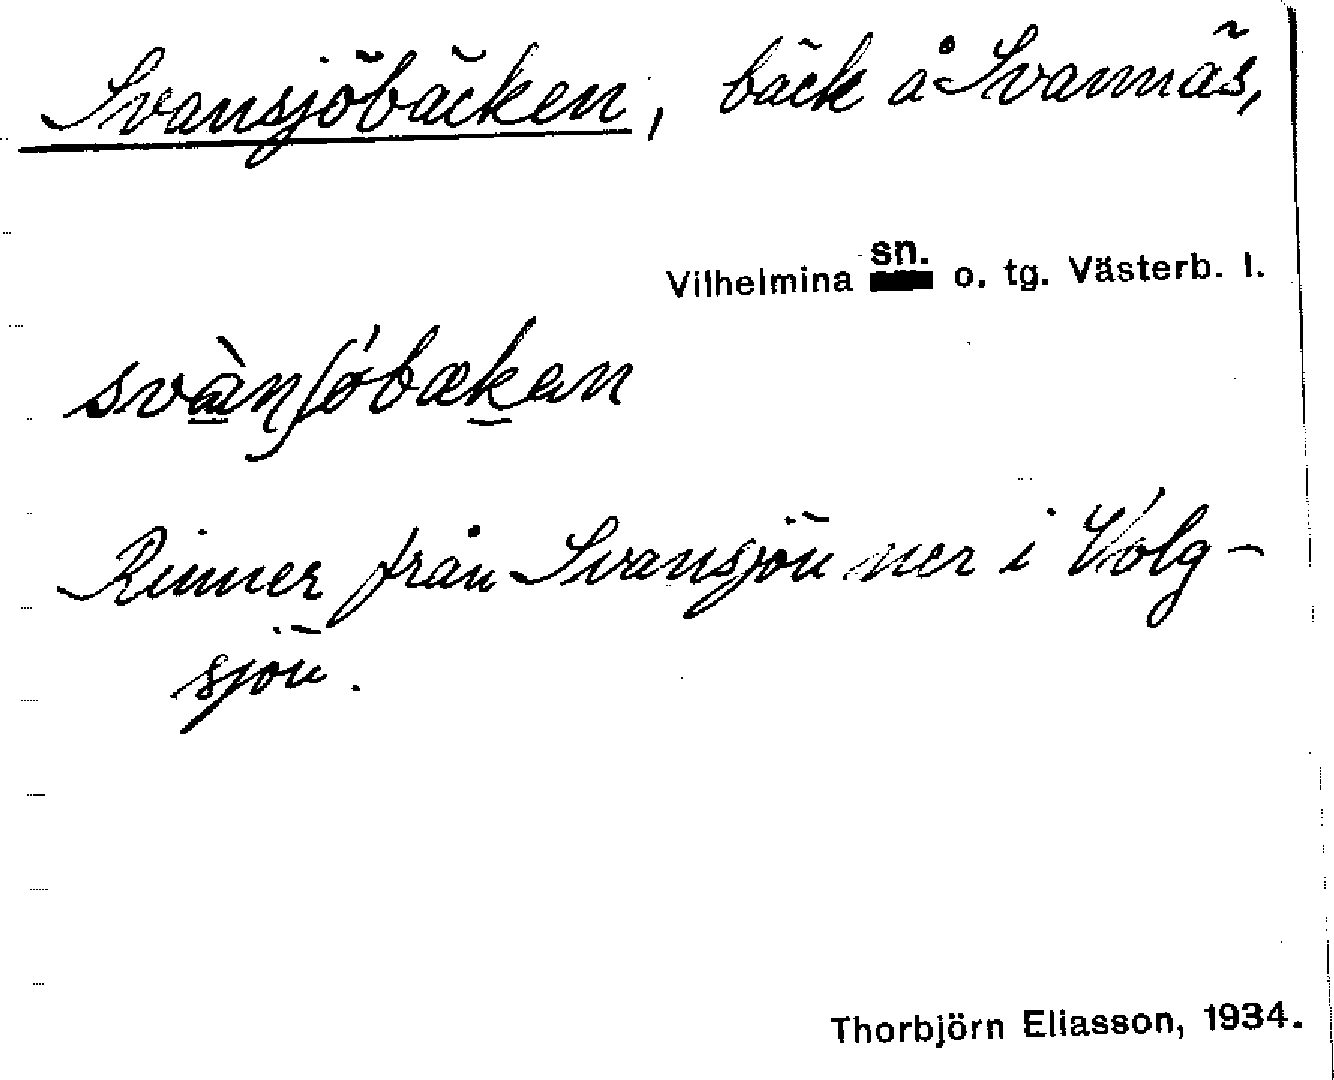 Svansjöbäcken, bäck å Svannäs,
Vilhelmina sn. o. tg. Västerb. l.
svànʃóbækan
Rinner från Svansjön ner i Volg-
sjön.
Thorbjörn Eliasson, 1934.